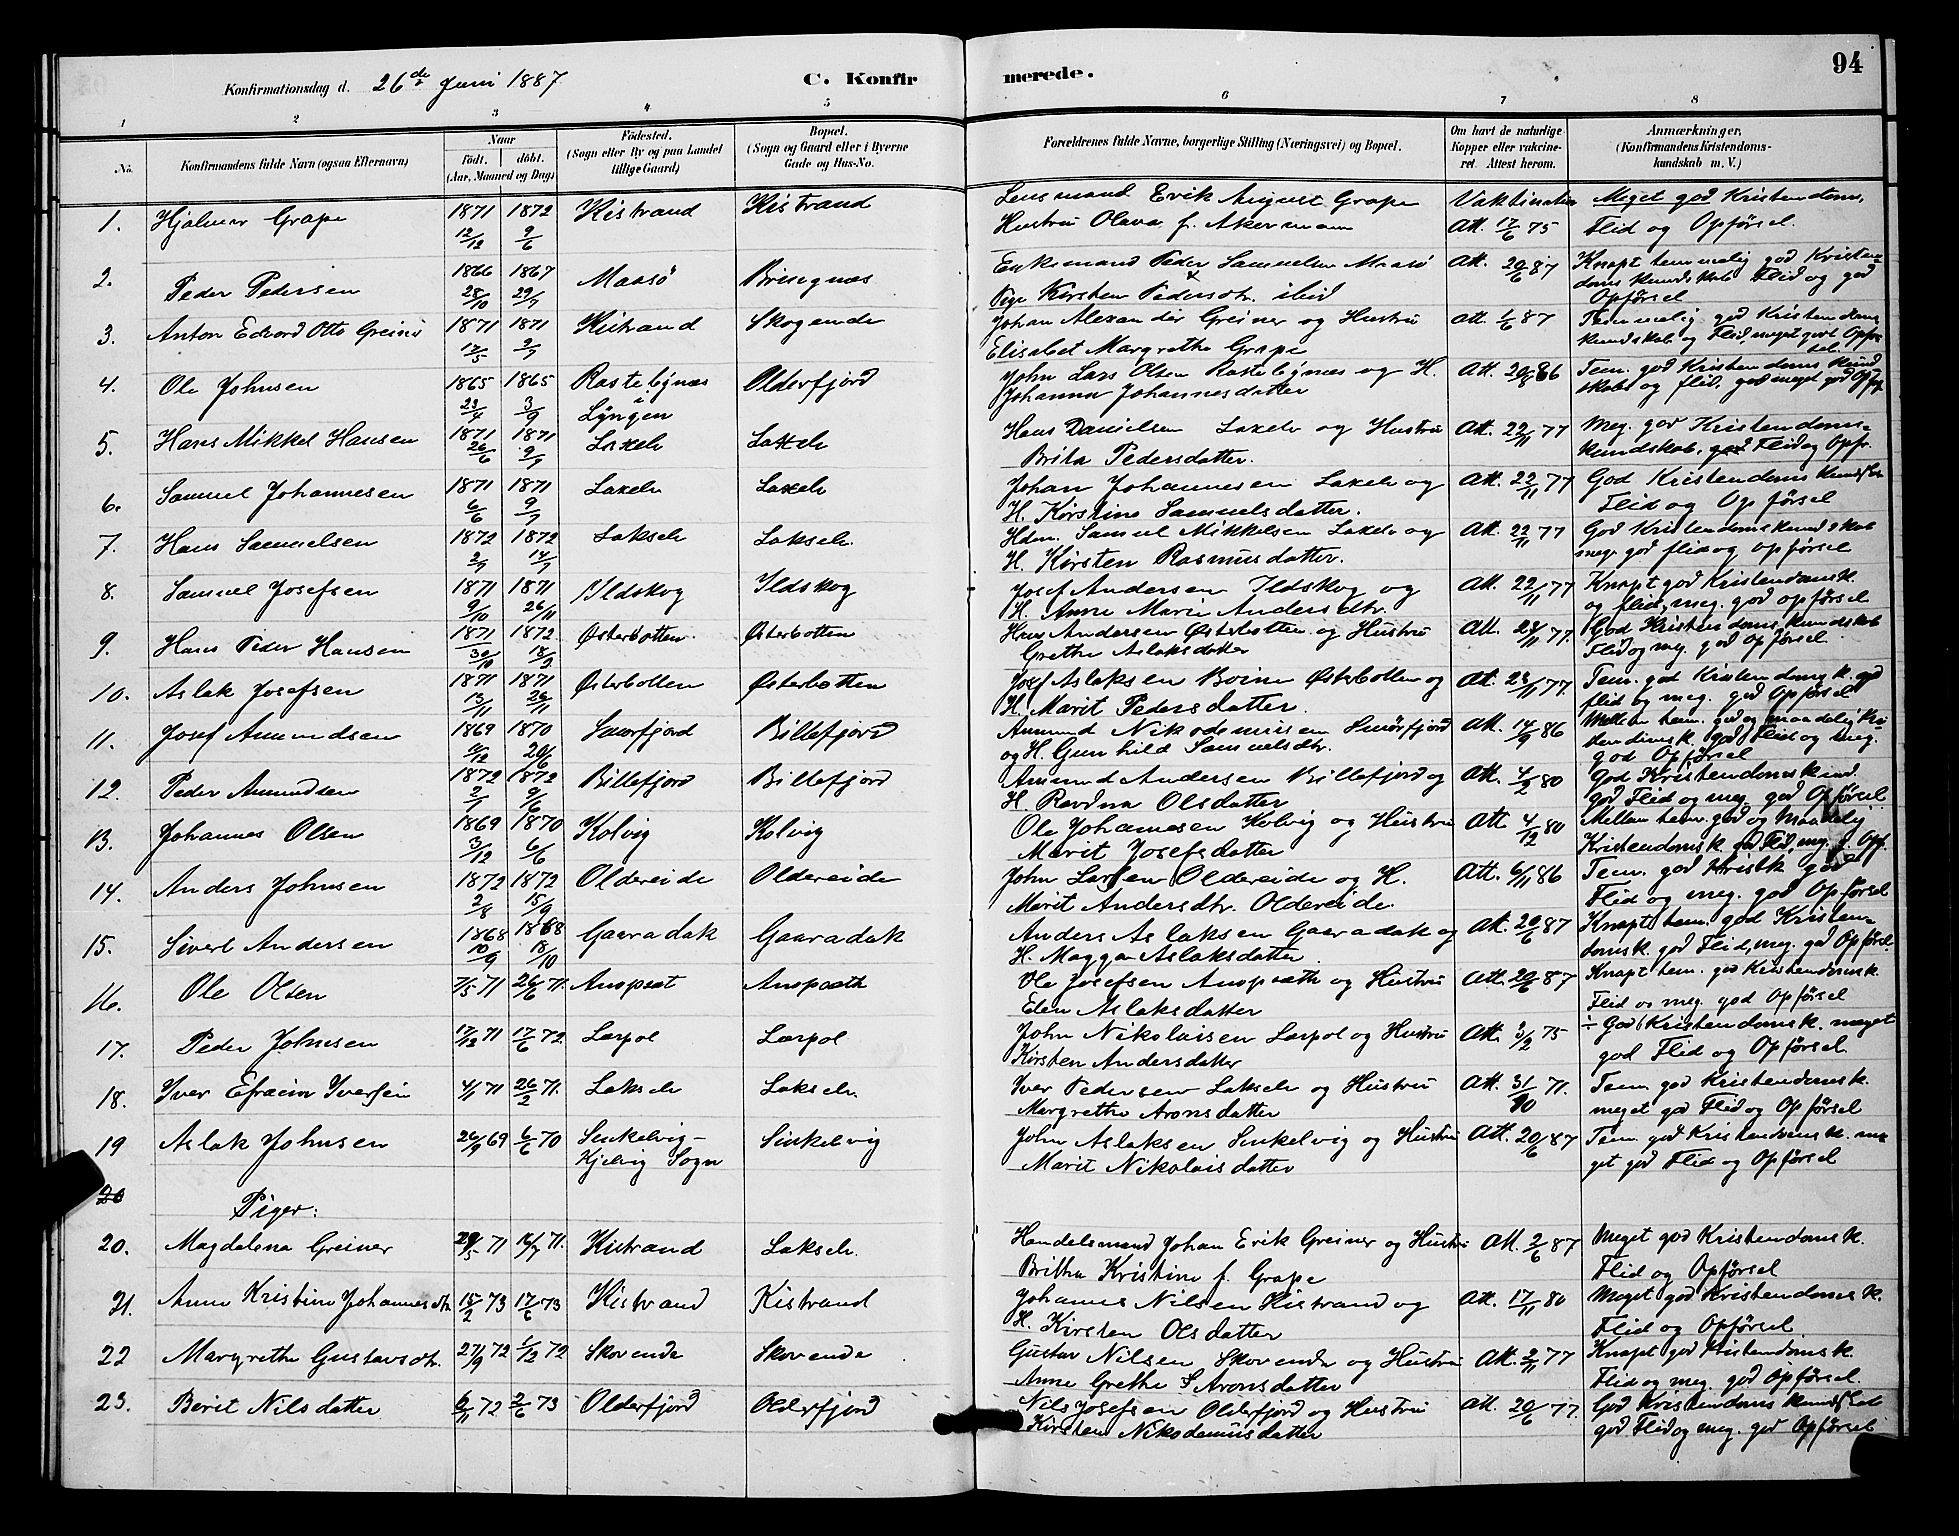 94
Konfirmationsdag d. 26de Juni 1887. C. Konfirmerede.
1 2 3 4 5 6 7 8
No. Konfirmandens fulde Navn (ogsaa Efternavn) Naar födt. döbt. (Aar, Maaned og Dag) Födested. (Sogn eller By og paa Landet tillige Gaard) Bopæl. (Sogn og Gaard eller i Byerne Gade og Hus-No. Forældrenes fulde Navne, borgerlige Stilling (Næringsvei) og Bopæl. Om havt de naturlige Kopper eller vakcineret. Attest herom. Anmærkninger, (Konfirmandens Kristendomskundskab m. V.)
1. Hjalmar Grape 1871 12/12 1872 9/6 Kistrand Kistrand Lensmand Erik August Grape Vaktination Meget god Kristendoms,
Hustru Olava f. Akermann Att. 17/6 75 Flid og Opførsel.
2. Peder Pedersen 1866 28/10 1867 29/7 Maasö Brisegnæs Enkemand Peder Samuelsen Maasö Att. 20/6 87 Knapt temmelig god Kristen-
Pige Kirsten Pedersdtr. ibid domskundskab Flid og god
Opførsel
3. Anton Edvard Otto Greiner 1871 12/5 1871 9/7 Kistrand Skogende Johan Alexander Greiner og Hustru Att. 1/6 87 Temmelig god Kristendoms
Elisabet Margrethe Grape kundskab og Flid, meget god Opfør
4. Ole Johnsen 1865 23/4 1865 3/9 Rastebynæs i Lyngen Olderfjord John Lars Olsen Rastebynæs og H. Att. 20/8 86 Tem. god Kristendoms kund
Johanna Johannesdatter skab og flid, meget god Opf.
5. Hans Mikkel Hansen 1871 26/6 1871 9/7 Laxelv Laxelv Hans Danielsen Laxelv og Hustru Att. 22/11 77 Meg. god Kristendoms-
Brita Pedersdatter. kundskab, god Flid og Opfr.
6. Samuel Johannesen 1871 6/6 1871 9/7 Laxelv Laxelv Johan Johannesen Laxelv og Att. 22/11 77 God Kristendoms kundskab
H. Kirstine Samuelsdatter. Flid og Opførsel
7. Hans Samuelsen 1872 2/7 1872 14/7 Lakselv Lakselv. Hdm. Samuel Mikkelsen Laxelv og Att. 22/11 77 God Kristendomskundskab
H. Kirsten Rasmusdatter. meg. god flid og opførsel
8. Samuel Josefsen 1871 9/10 1871 26/11 Ildskog Ildskog Josef Andersen Ildskog og Att. 22/11 77 Knapt god Kristendomsk.
H. Anne Marie Andersdtr. og flid, meg. god opførsel
9. Hans Peder Hansen 1871 30/10 1872 18/2 Østerbotten. Østerbotten Hans Andersen Østerbotten og Hustru Att. 28/11 77. God Kristendoms kundskab
Grethe Aslaksdatter Flid og meg. god Opførsel.
10. Aslak Josefsen 1871 12/11 1871 26/11 Østerbotten Østerbotten Josef Aslaksen Boine Østerbotten og Att. 28/11 77. Tem. god Kristendomsk. god
H. Marit Pedersdatter. flid og meg. god Opførsel
11. Josef Amundsen 1869 1870 26/6 Smørfjord Billefjord Amund Nikodemusen Smörfjord Att. 14/9 86 Mellem tem. god og maadelig Kri
og H. Gunhild Samuelsdtr. stendomsk. god Flid og meg.
god Opførsel
12. Peder Amundsen 1872 2/1 1872 9/6 Billefjord Billefjord Amund Andersen Billefjord og Att. 4/2 80 God Kristendomskund.
H. Ravdna Olsdatter god Flid og meg. god Opførsel
13. Johannes Olsen 1869 3/12 1870 6/6 Kolvig Kolvig Ole Johannesen Kolvig og Hustru Att. 4/12 80 Mellem tem. god og Maadelig
Marit Josefsdatter Kristendomsk god Flid, meg. g. Opf.
14. Anders Johnsen 1872 2/8 1872 15/9 Oldereide Oldereide John Larsen Oldereide og H. Att. 6/11 86 Tem. god Kristk god
Marit Andersdtr. Oldereide. Flid og meg. god Opførsel
15. Sivert Andersen 1868 10/9 1868 18/10 Gaaradak Gaaradak Anders Aslaksen Gaaradak og Att. 20/6 87 Knapt tem. god Kristen-
H. Magga Aslaksdatter. domsk. god Flid, meg. god Opførsel
16. Ole Olsen 7/5 71 26/6 71. Anopsæt Anopsæth Ole Josefsen Anopsæth og Hustru Att. 20/6 87 Knapt tem. god Kristendomsk
Elen Aslaksdatter Flid og meg. god Opførsel
17. Peder Johnsen 17/12 71 17/6 72 Lærpol Lærpol John Nikolaisen Lærpol og Hustru Att. 3/2 75 ÷ God Kristendomsk. meget
Kirsten Andersdatter god Flid og Opførsel
18. Iver Efraim Iversen 4/1 71 26/2 71. Lakselv Lakselv. Iver Pedersen Lakselv og Hustru Att. 31/10 71. Tem. god Kristendomsk.
Margrethe Aronsdatter meget god Flid og Opførsel
19 Aslak Johnsen 26/9 69 6/6 70 Sinkelvig- Kjelvig Sogn Sinkelvig John Aslaksen Sinkelvig og Hustru Att. 20/6 87 Tem. god Kristendomsk. me
Marit Nikolaisdatter get god Flid og Opførsel
20
Piger:
20. Magdalena Greiner 29/5 71 16/7 71. Kistrand Lakselv. Handelsmand Johan Erik Greiner og Hustru Att. 2/6 87 Meget god Kristendomsk.
Britha Kristine f. Grape Flid og Opførsel
21. Anne Kristine Johannesdtr 15/2 73 17/6 73 Kistrand Kistrand Johannes Nilsen Kistrand og Att. 17/11 80 Meget god Kristendomsk.
H. Kirsten Olsdatter Flid og Opførsel
22 Margrethe Gustavsdtr. 27/9 72 1/12 72 Skovende Skovende Gustav Nilsen Skovende og Hustru Att. 2/11 77 Knapt god Kristendomsk.
Anne Grethe Aronsdatter Flid og meg. god Opførsel.
23. Berit Nilsdatter 6/11 72 2/6 73 Olderfjord Olderfjord Nils Josefsen Olderfjord og Hustru Att. 20/6 77. God Kristendoms kundskab
Kirsten Nikodemusdatter god Flid og meg. god Opførsel